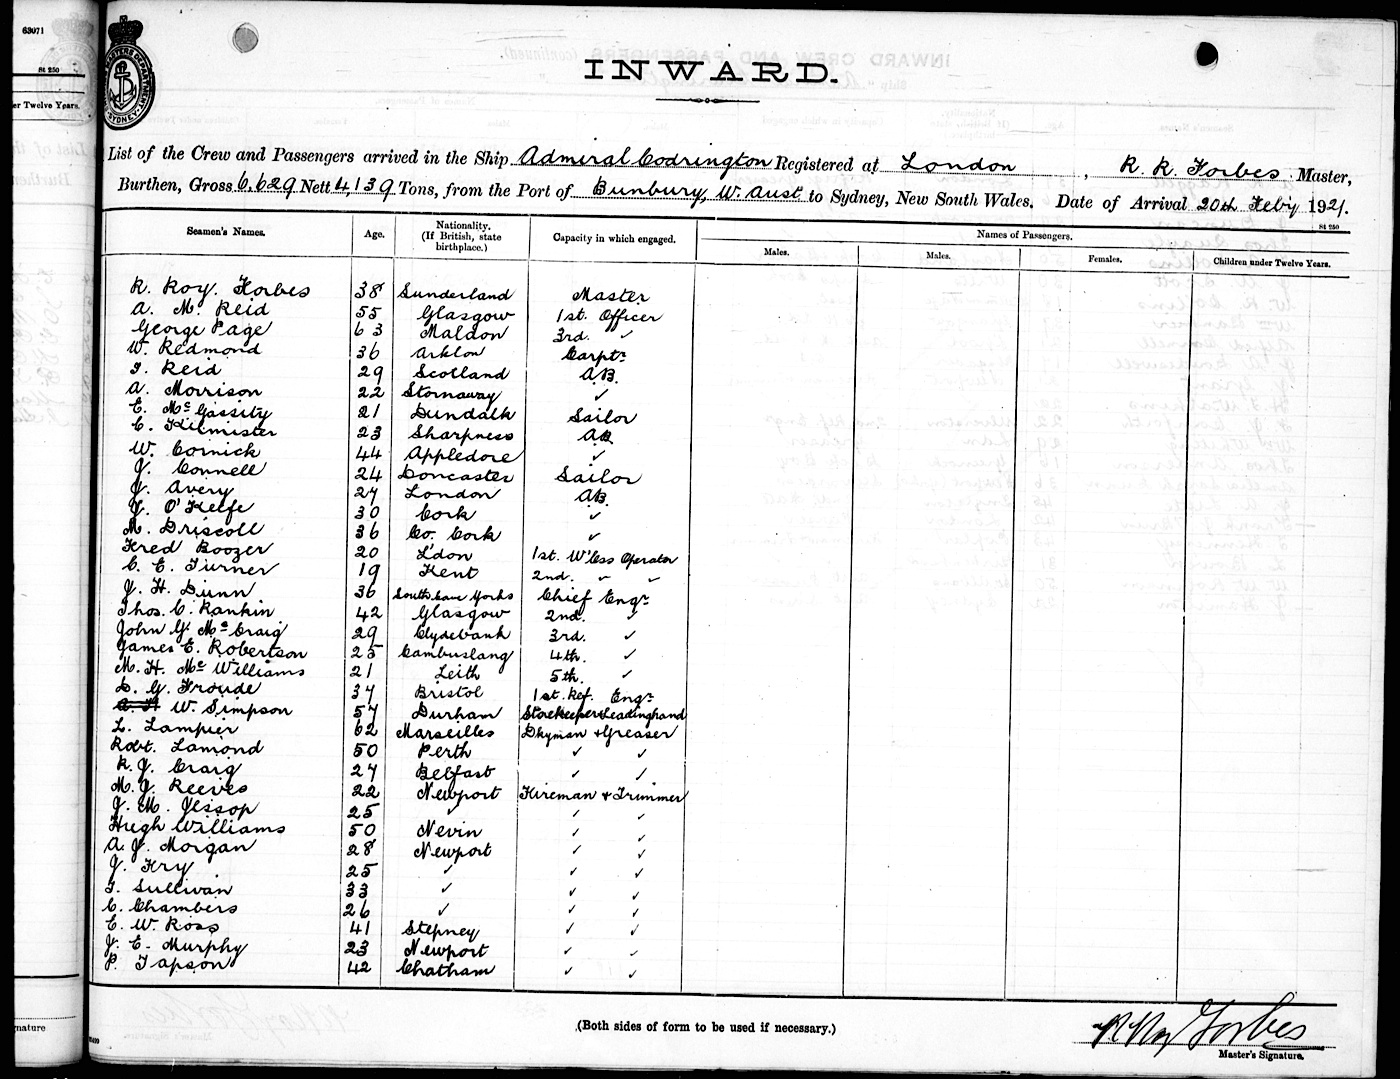 63071
St 250
er Twelve Years.
nature
SYDNEY
INWARD.
List of the Crew and Passengers arrived in the Ship Admiral Codrington Registered at London, R. R. Forbes Master,
Burthen, Gross 6,629 Nett 4,139 Tons, from the Port of Bunbury, W. Aust to Sydney, New South Wales. Date of Arrival 20th Feb'y 1921.
St 250
Seamen's Names. Age. Nationality. (If British, state birthplace.) Capacity in which engaged. Names of Passengers.
Males. Males. Females. Children under Twelve Years.
R. Roy. Forbes 38 Sunderland Master
A. M. Reid 55 Glasgow 1st. Officer
George Page 63 Maldon 3rd. ✓
W. Redmond 36 Arklow Carptr
J. Reid 29 Scotland A.B.
A. Morrison 22 Stornaway ✓
E. Mc Gassity 21 Dundalk Sailor
C. Kilmister 23 Sharpness AB
W. Cornick 44 Appledore ✓
J. Connell 24 Doncaster Sailor
J. Avery 27 London AB.
J. O'Keefe 30 Cork ✓
M. Driscoll 36 Co. Cork ✓
Fred Boozer 20 L'don 1st. W'less Operator
C. E. Turner 19 Kent 2nd. " "
J. H. Dunn 36 South Cave Yorks Chief Engr
Thos. C. Rankin 42 Glasgow 2nd. ✓
John G. Mc Craig 29 Clydebank 3rd. ✓
James E. Robertson 25 Cambuslang 4th. ✓
M. H. Mc Williams 21 Leith 5th. ✓
D. G. Froude 37 Bristol 1st. Ref. Engr
W. Simpson 57 Durham Storekeeper & Leadinghand
L. Lampier 62 Marseilles Dkyman & Greaser
Robt. Lamond 50 Perth ✓ ✓
R. J. Craig 27 Belfast ✓ ✓
M. J. Reeves 22 Newport Fireman & Trimmer
J. M. Jessop 25 ✓ ✓ ✓
Hugh Williams 50 Nevin ✓ ✓
A. J. Morgan 28 Newport ✓ ✓
J. Fry 25 ✓ ✓ ✓
J. Sullivan 33 ✓ ✓ ✓
C. Chambers 26 ✓ ✓ ✓
E. W. Ross 41 Stepney ✓ ✓
J. E. Murphy 23 Newport ✓ ✓
P. Tapson 42 Chatham ✓ ✓
(Both sides of form to be used if necessary.)
R Roy Forbes
Master's Signature.